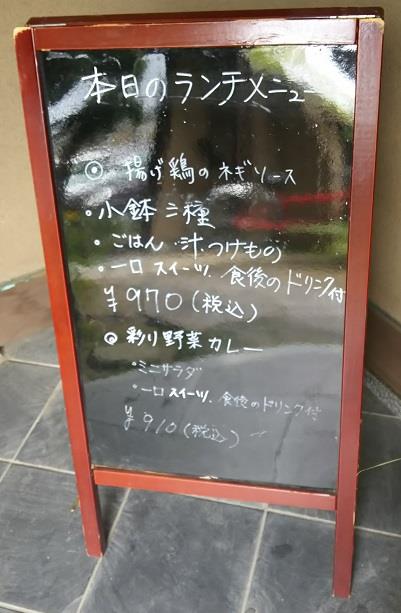 本日のランチメニュー
◎ 揚げ鶏のネギソース
・小鉢二種
・ごはん 汁 つけもの
・一口スイーツ、食後のドリンク付
¥970(税込)
◎ 彩り野菜カレー
・ミニサラダ
・一口スイーツ、食後のドリンク付
¥910(税込)